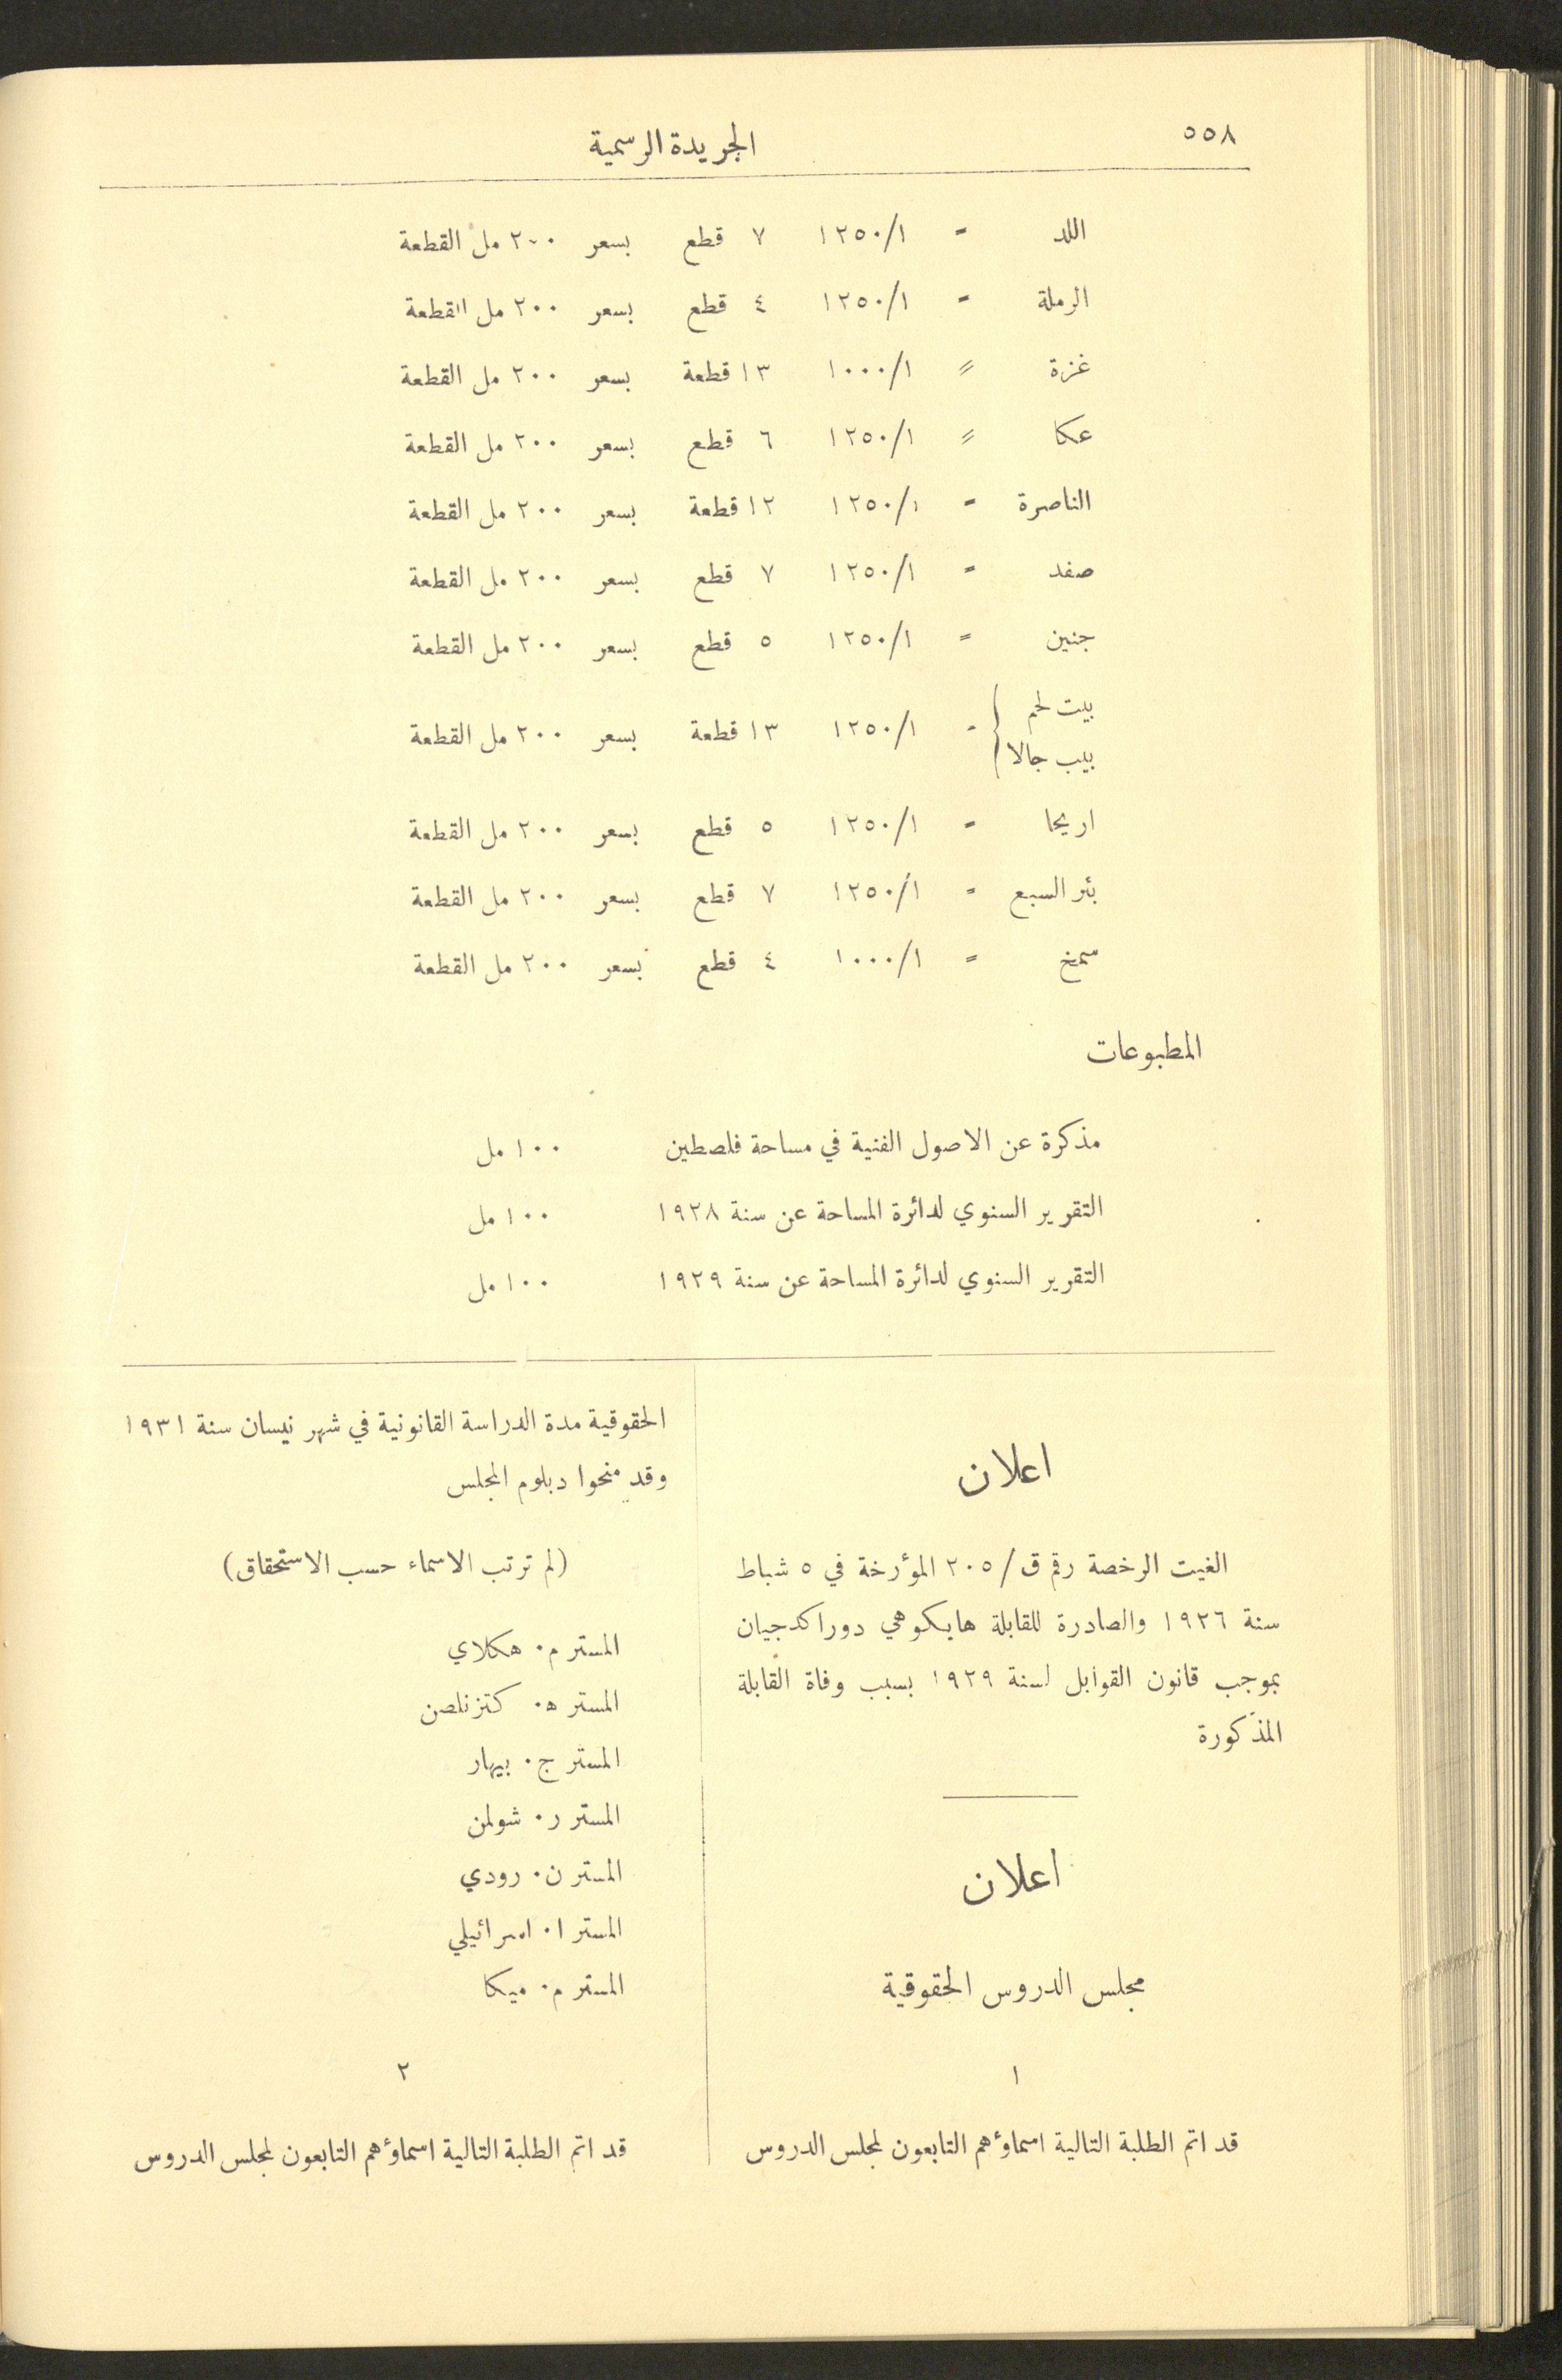 ٥٥٨
الجريدة الرسمية
اللد = ١٢٥٠/١ ٧ قطع بسعر ٢٠٠ مل القطعة
الرملة = ١٢٥٠/١ ٤ قطع بسعر ٢٠٠ مل القطعة
غزة = ١٠٠٠/١ ١٣ قطعة بسعر ٢٠٠ مل القطعة
عكا = ١٢٥٠/١ ٦ قطع بسعر ٢٠٠ مل القطعة
الناصرة = ١٢٥٠/١ ١٢ قطعة بسعر ٢٠٠ مل القطعة
صفد = ١٢٥٠/١ ٧ قطع بسعر ٢٠٠ مل القطعة
جنين = ١٢٥٠/١ ٥ قطع بسعر ٢٠٠ مل القطعة
بيت لحم
بيب جالا = ١٢٥٠/١ ١٣ قطعة بسعر ٢٠٠ مل القطعة
اريحا = ١٢٥٠/١ ٥ قطع بسعر ٢٠٠ مل القطعة
بئر السبع = ١٢٥٠/١ ٧ قطع بسعر ٢٠٠ مل القطعة
سمخ = ١٠٠٠/١ ٤ قطع بسعر ٢٠٠ مل القطعة
المطبوعات
مذكرة عن الاصول الفنية في مساحة فلسطين ١٠٠ مل
التقرير السنوي لدائرة المساحة عن سنة ١٩٢٨ ١٠٠ مل
التقرير السنوي لدائرة المساحة عن سنة ١٩٢٩ ١٠٠ مل
اعلان
الغيت الرخصة رقم ق/٢٠٥ المؤرخة في ٥ شباط
سنة ١٩٢٦ والصادرة للقابلة هايكوهي دوراكدجيان
بموجب قانون القوابل لسنة ١٩٢٩ بسبب وفاة القابلة
المذكورة
اعلان
مجلس الدروس الحقوقية
١
قد اتم الطلبة التالية اسماؤهم التابعون لمجلس الدروس
الحقوقية مدة الدراسة القانونية في شهر نيسان سنة ١٩٣١
وقد منحوا دبلوم المجلس
(لم ترتب الاسماء حسب الاستحقاق)
المستر م. هكلاي
المستر ه. كتزنلصن
المستر ج. بيهار
المستر ر. شولمن
المستر ن. رودي
المستر ا. اسرائيلي
المستر م. ميكا
٢
قد اتم الطلبة التالية اسماؤهم التابعون لمجلس الدروس